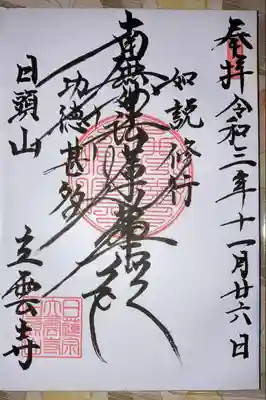 奉拝 令和三年十一月廿六日
如説修行
南無妙法蓮華経
功徳甚多
日頭山
立雲寺